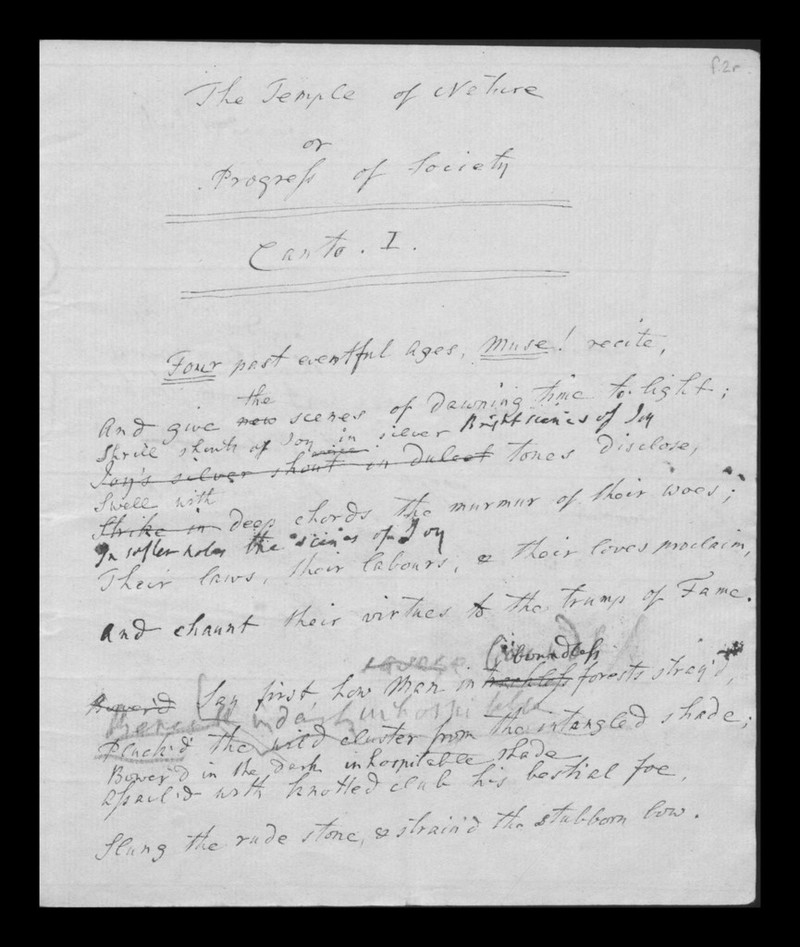 f.2r
The Temple of Nature
or
Progress of Society
Canto. I.
Four past eventful ages, Muse! recite,
the
And give new scenes of dawning time to light;
Shrill shouts of Joy in silver Bright scenes of Joy
Joy's silver shout or dulcet tones disclose,
Swell with
Strike in deep chords the murmur of their woes;
In softer notes the scenes of Joy
Their laws, their labours, & their loves proclaim,
And chaunt their virtues to the trump of Fame.
boundless
Bower'd Say first how Man in trackless forests stray'd,
Beneath inhospitable
Pluck'd the wild cluster from the intangled shade;
Bower'd in the dark inhospitable shade
Assail'd with knotted club his bestial foe,
Slung the rude stone, & strain'd the stubborn bow.